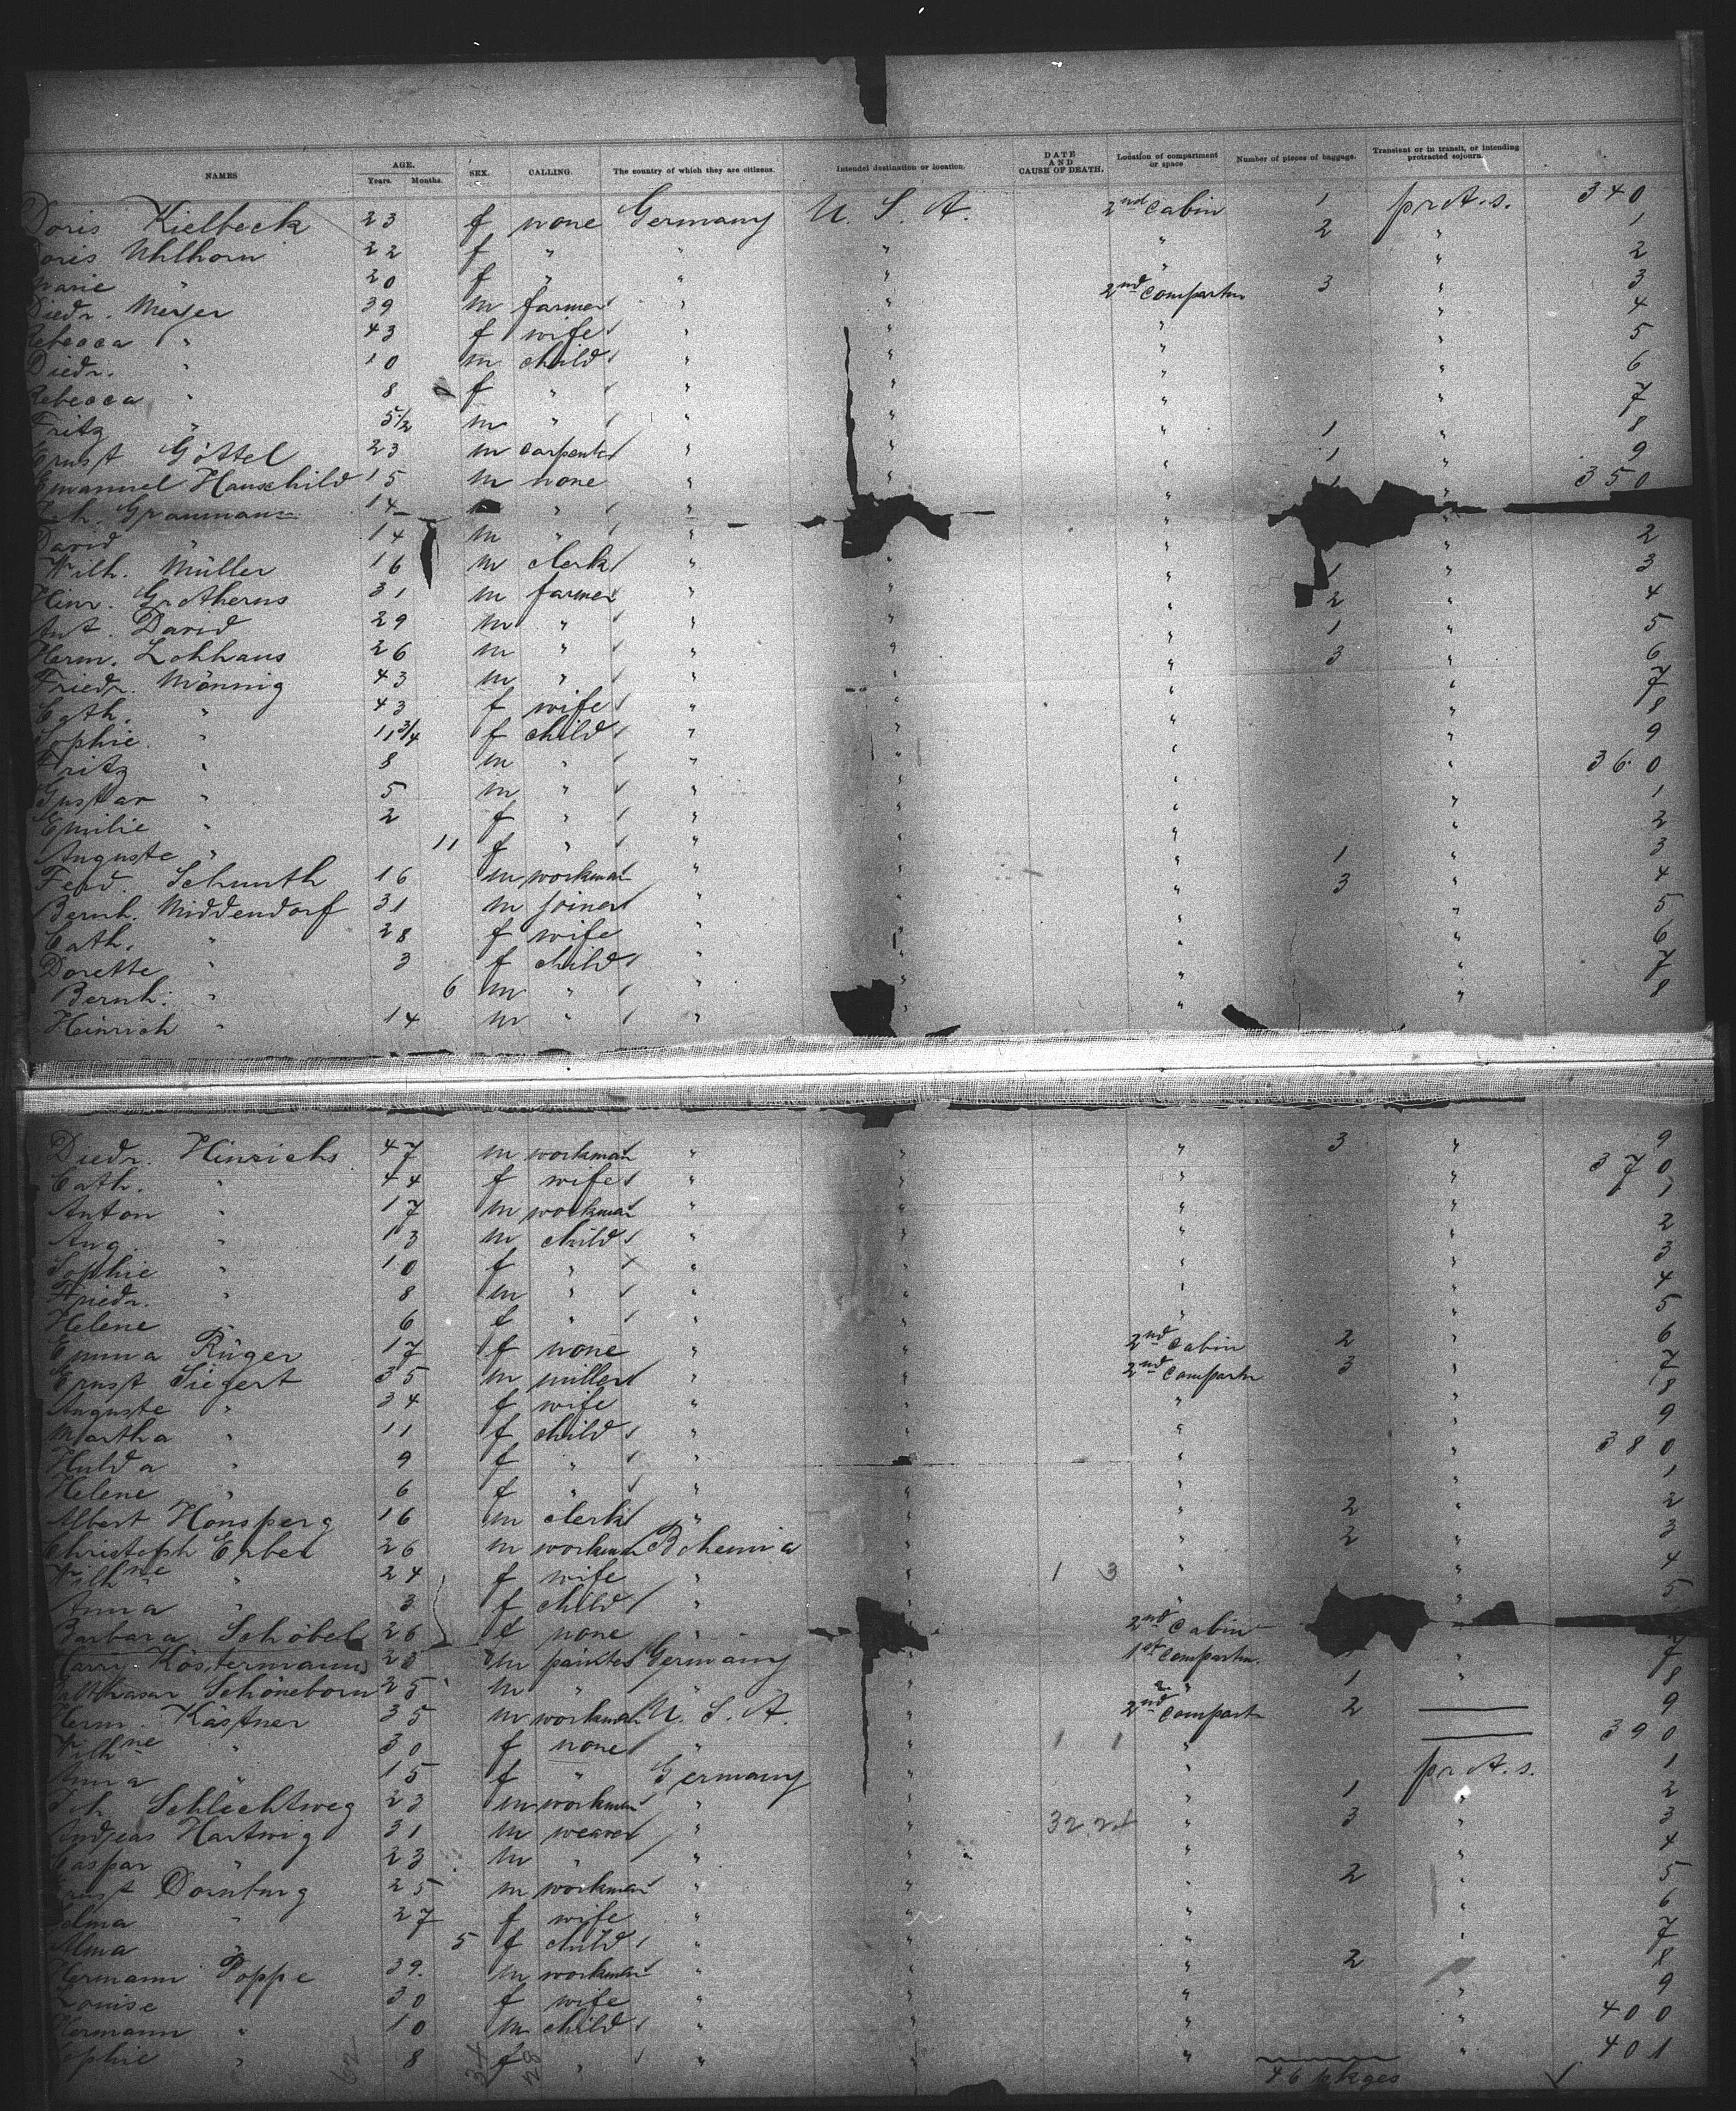 NAMES AGE. Years. Months. SEX. CALLING. The country of which they are citizens. Intendel destination or location. DATE AND CAUSE OF DEATH. Location of compartment or space Number of pieces of baggage. Transient or in transit, or intending protracted sojourn.
Doris Kielbeck 23 f none Germany U. S. A. 2nd Cabin 1 pr A. s. 340
Doris Uhlhorn 22 f " " " " 2 " 1
Marie " 20 f " " " " " 2
Diedr. Meyer 39 m farmer " " 2nd Compartm 3 " 3
Rebecca " 43 f wife " " " " 4
Diedr. " 10 m child " " " " 5
Rebecca " 8 f " " " " " 6
Fritz " 5 1/2 m " " " " " 7
Ernst Göttel 23 m carpenter " " " 1 " 8
Emanuel Hauschild 15 m none " " " 1 " 9
Joh. Graumann 14 " " " " 1 " 350
David " 14 m " " " " "
Wilh. Müller 16 m clerk " " " 1 " 2
Hinr. Grotherns 31 m farmer " " " 2 " 3
Ant. David 29 m " " " " 1 " 4
Herm. Lohhaus 26 m " " " " 3 " 5
Friedr. Männig 43 m " " " " " 6
Cath. " 43 f wife " " " " 7
Sophie " 11 3/4 f child " " " " 8
Fritz " 8 m " " " " " 9
Gustav " 5 m " " " " " 360
Emilie " 2 f " " " " " 1
Auguste " 11 f " " " " " 2
Ferd. Schunth 16 m workman " " " 1 " 3
Bernh. Middendorf 31 m joiner " " " 3 " 4
Cath. " 28 f wife " " " " 5
Dorette " 3 f child " " " " 6
Bernh. " 6 m " " " " " 7
Heinrich " 14 m " " " " " 8
Diedr. Hinrichs 47 m workman " " " 3 " 9
Cath. " 44 f wife " " " " 370
Anton " 17 m workman " " " " 1
Aug. " 13 m child " " " " 2
Sophie " 10 f " " " " " 3
Friedr. " 8 m " " " " " 4
Helene " 6 f " " " " " 5
Emma Rüger 17 f none " " 2nd Cabin 2 " 6
Ernst Siegert 35 m miller " " 2nd Compartm 3 " 7
Auguste " 34 f wife " " " " 8
Martha " 11 f child " " " " 9
Hulda " 9 f " " " " " 380
Helene " 6 f " " " " " 1
Albert Hönsperg 16 m clerk " " " 2 " 2
Christoph Erbel 26 m workman Bohemia " " 2 " 3
Wilhne " 24 f wife " " 1 3 " " 4
Anna " 3 f child " " " " 5
Barbara Schöbel 26 f none " 2nd Cabin
Harry Köstermann 23 m painter Germany " 1st Compartm. " 7
Balthasar Schöneborn 25 m " " " " 1 " 8
Herm. Kästner 35 m workman U. S. A. " 2nd Compart 2 — 9
Wilhne " 30 f none " " 1 1 " — 390
Anna " 15 f " Germany " " pr A. s. 1
Joh. Schlechtweg 23 m workman " " " 1 " 2
Andreas Hartwig 31 m weaver " " 32 24 " 3 " 3
Caspar " 23 m " " " " " 4
Ernst Dornburg 25 m workman " " " 2 " 5
Selma " 27 f wife " " " " 6
Alma " 5 f child " " " " 7
Hermann Poppe 39 m workman " " " 2 8
Louise " 30 f wife " " " " 9
Hermann " 10 m child " " " " 400
Sophie " 8 f " " " " " 401
62 34 28 46 pkges